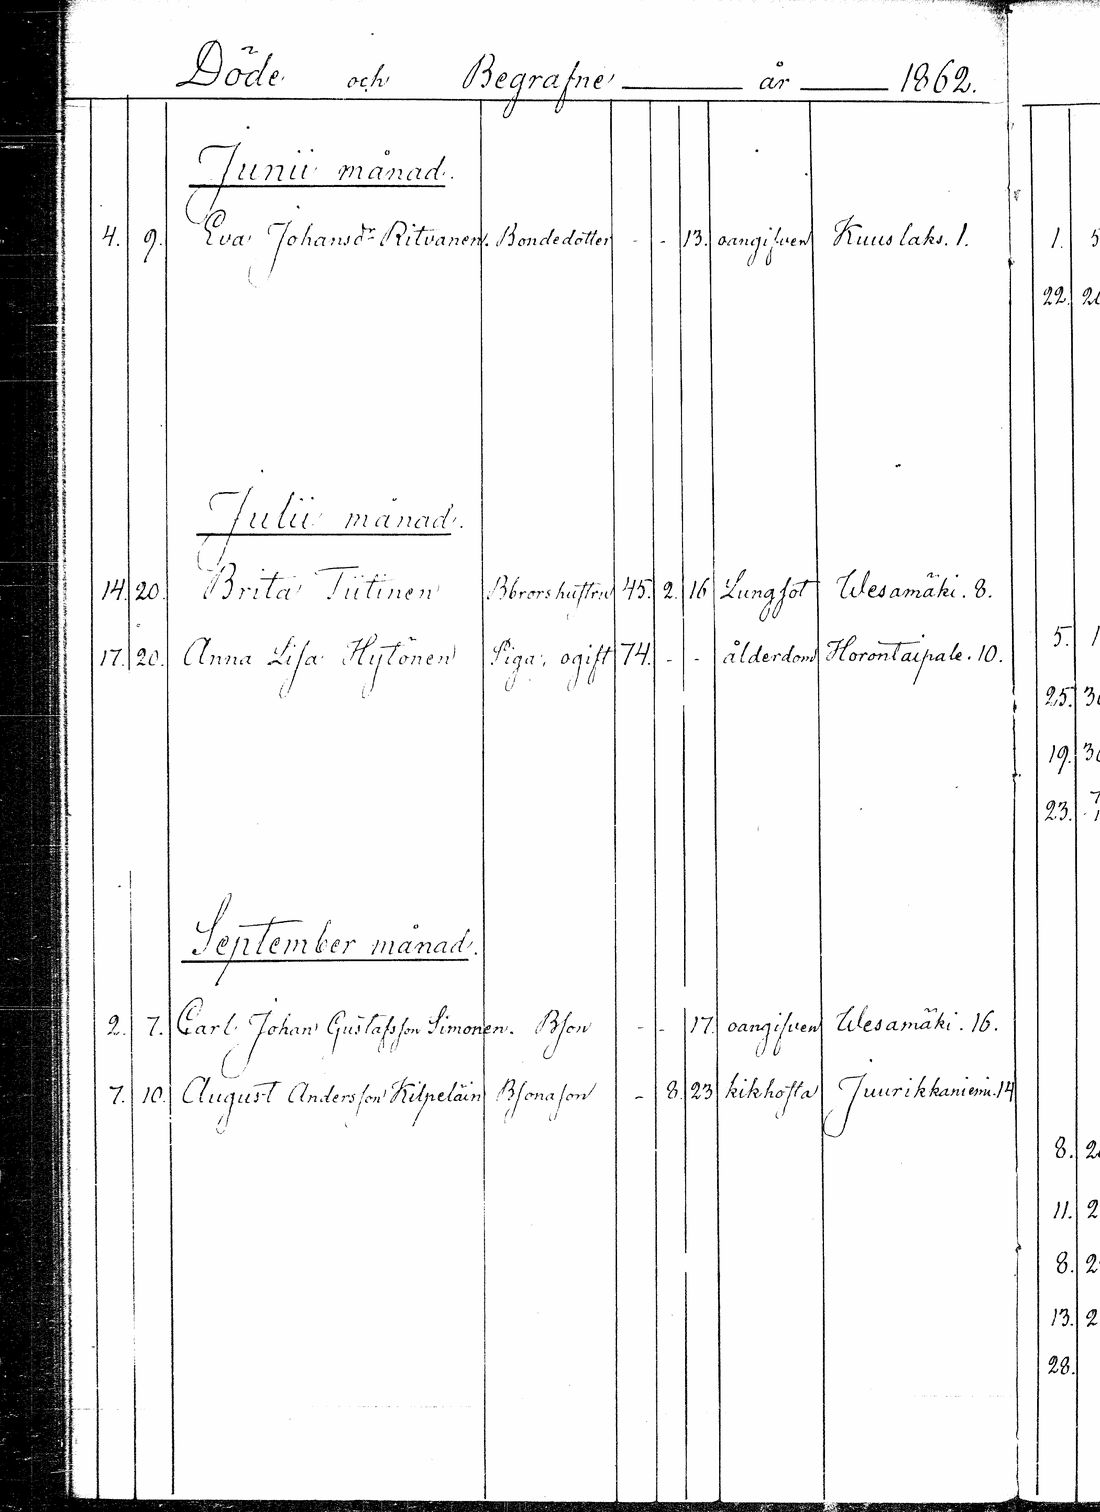 Döde och Begrafne år 1862.
Junii månad.
4. 9. Eva Johansdr Ritvanen. Bondedotter - - 13. oangifven Kuuslaks. 1.
Julii månad.
14. 20. Brita Tiitinen Bbrors hustru 45. 2. 16 Lungsot Wesamäki. 8.
17. 20. Anna Lisa Hytönen Piga, ogift 74. - - ålderdom Horontaipale. 10.
September månad.
2. 7. Carl Johan Gustafsson Simonen. Bson - - 17. oangifven Wesamäki. 16.
7. 10. August Andersson Kilpeläin Bsonason - 8. 23 kikhosta Juurikkaniemi. 14
1. 5
22.
5. 1
25. 30
19. 30
23.
8. 2
11. 2
8. 2
13. 2
28.